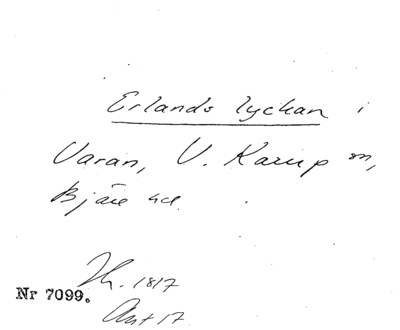 Erlands lyckan i
Varan, V. Karup sn,
Bjäre hd.
Th. 1817
Ant 17
Nr 7099.